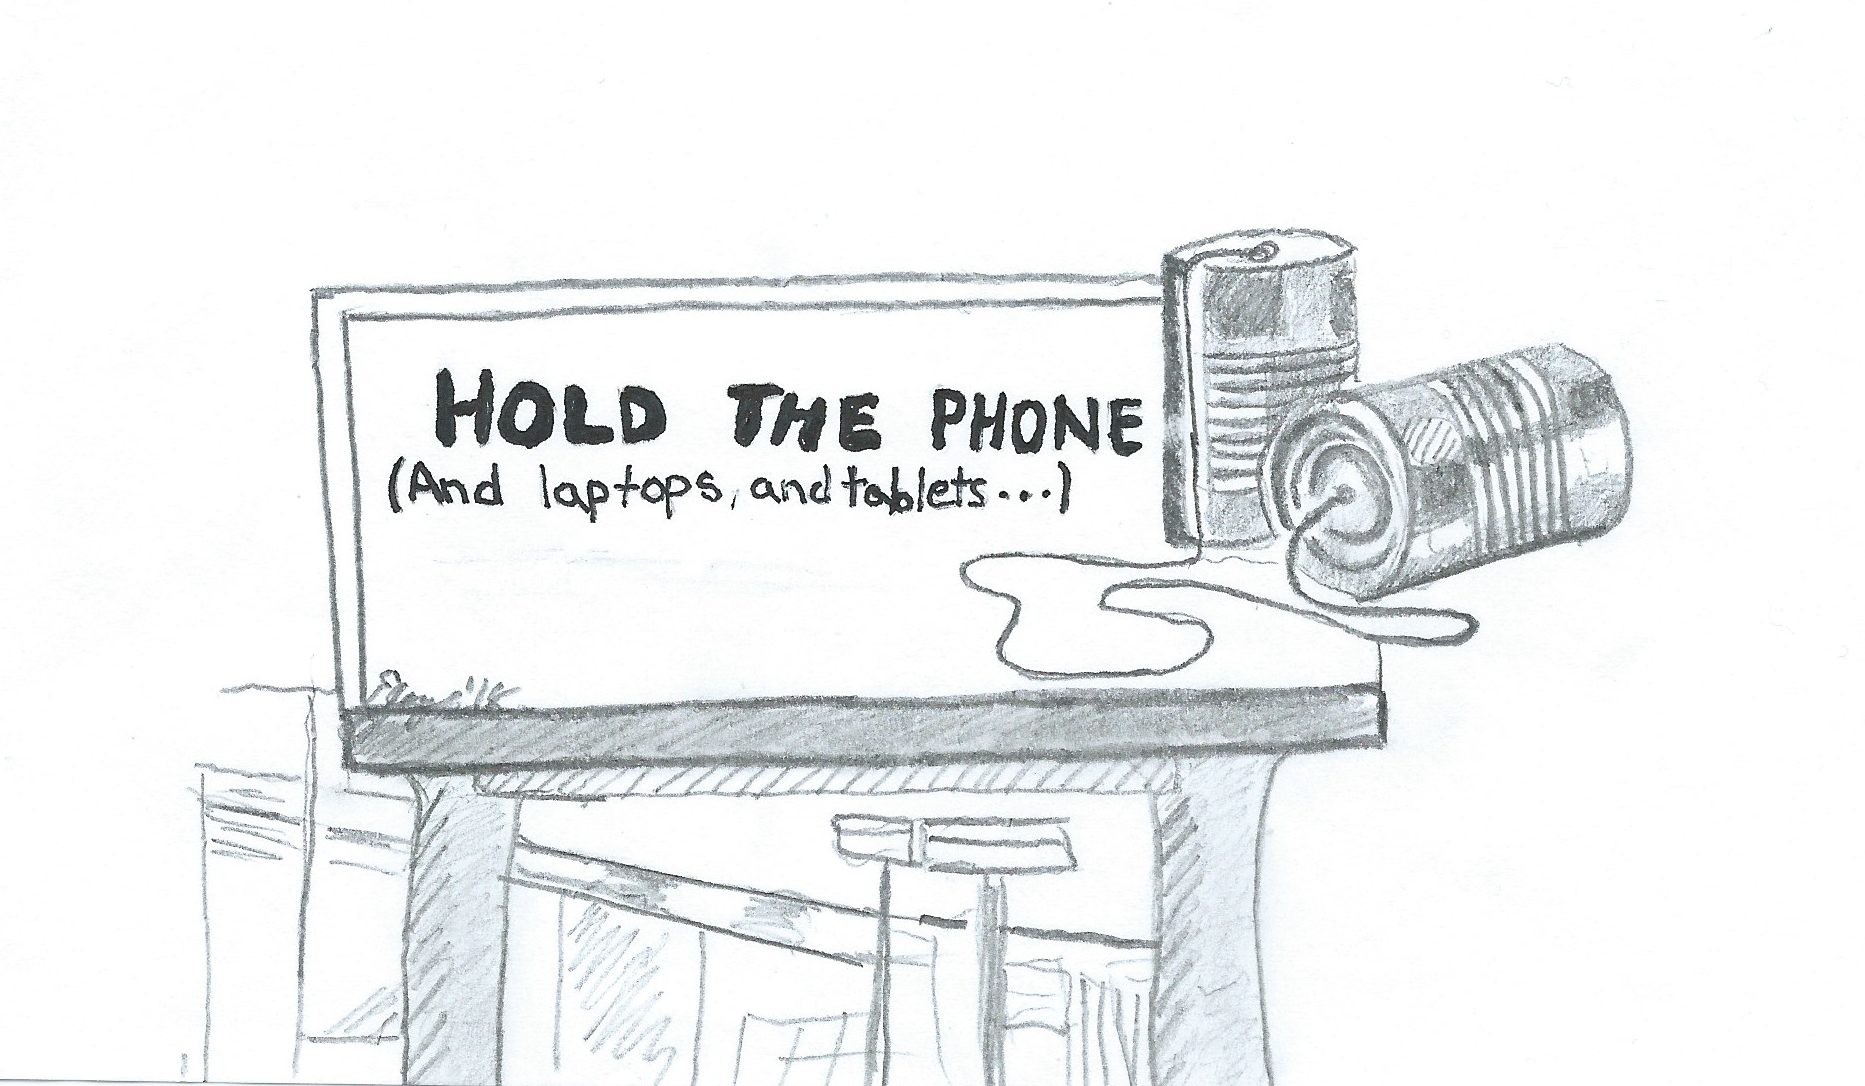 HOLD THE PHONE
(And laptops, and tablets...)